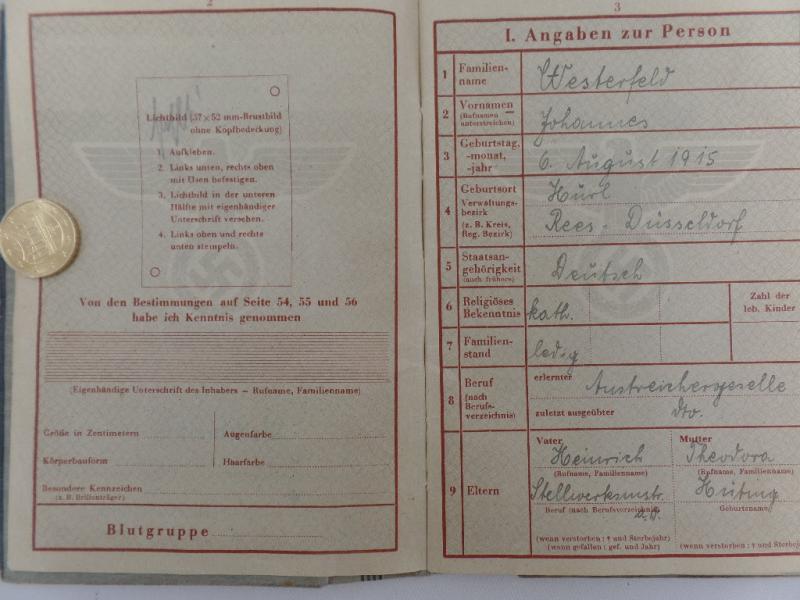 2
Lichtbild (37×52 mm-Brustbild
ohne Kopfbedeckung)
1. Aufkleben.
2. Links unten, rechts oben
mit Ösen befestigen.
3. Lichtbild in der unteren
Hälfte mit eigenhändiger
Unterschrift versehen.
4. Links oben und rechts
unten stempeln.
Von den Bestimmungen auf Seite 54, 55 und 56
habe ich Kenntnis genommen
(Eigenhändige Unterschrift des Inhabers – Rufname, Familienname)
Größe in Zentimetern
Augenfarbe
Körperbauform
Haarfarbe
Besondere Kennzeichen
(z. B. Brillenträger)
Blutgruppe
3
I. Angaben zur Person
1 Familien-
name
Westerfeld
2 Vornamen
(Rufnamen
unterstreichen)
Johannes
3 Geburtstag,
-monat,
-jahr
6. August 1915
4 Geburtsort
Verwaltungs-
bezirk
(z. B. Kreis,
Reg. Bezirk)
Hürl
Rees - Düsseldorf
5 Staatsan-
gehörigkeit
(auch frühere)
Deutsch
6 Religiöses
Bekenntnis
kath.
Zahl der
leb. Kinder
7 Familien-
stand
ledig
8 Beruf
(nach
Berufs-
verzeichnis)
erlernter
Anstreichergeselle
zuletzt ausgeübter
dto.
9 Eltern
Vater
Heinrich
(Rufname, Familienname)
Stellwerksmstr.
Beruf (nach Berufsverzeichnis)
(wenn verstorben: † und Sterbejahr)
(wenn gefallen: gef. und Jahr)
Mutter
Theodora
(Rufname, Familienname)
Hüting
Geburtsname)
(wenn verstorben: † und Sterbejahr)